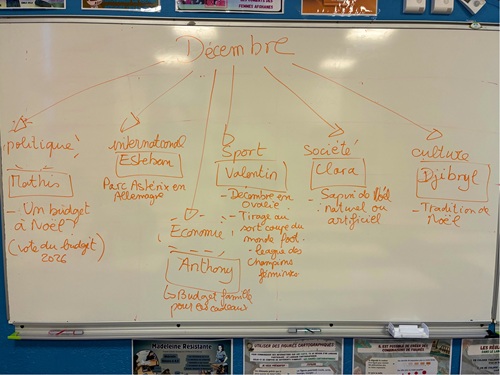 Décembre
politique
Mathis
- Un budget
à Noël?
(vote du budget
2026
international
Esteban
Parc Astérix en
Allemagne
Économie
Anthony
↳ Budget famille
pour les cadeaux
Sport
Valentin
- Décembre en
ovalie
- Tirage au
sort coupe du
monde foot.
- league des
Champions
féminines
Société
Clara
- Sapin de Noël
: naturel ou
artificiel
culture
Djibryl
- Tradition de
Noël
Madeleine Résistante
UTILISER DES FIGURÉS CARTOGRAPHIQUES